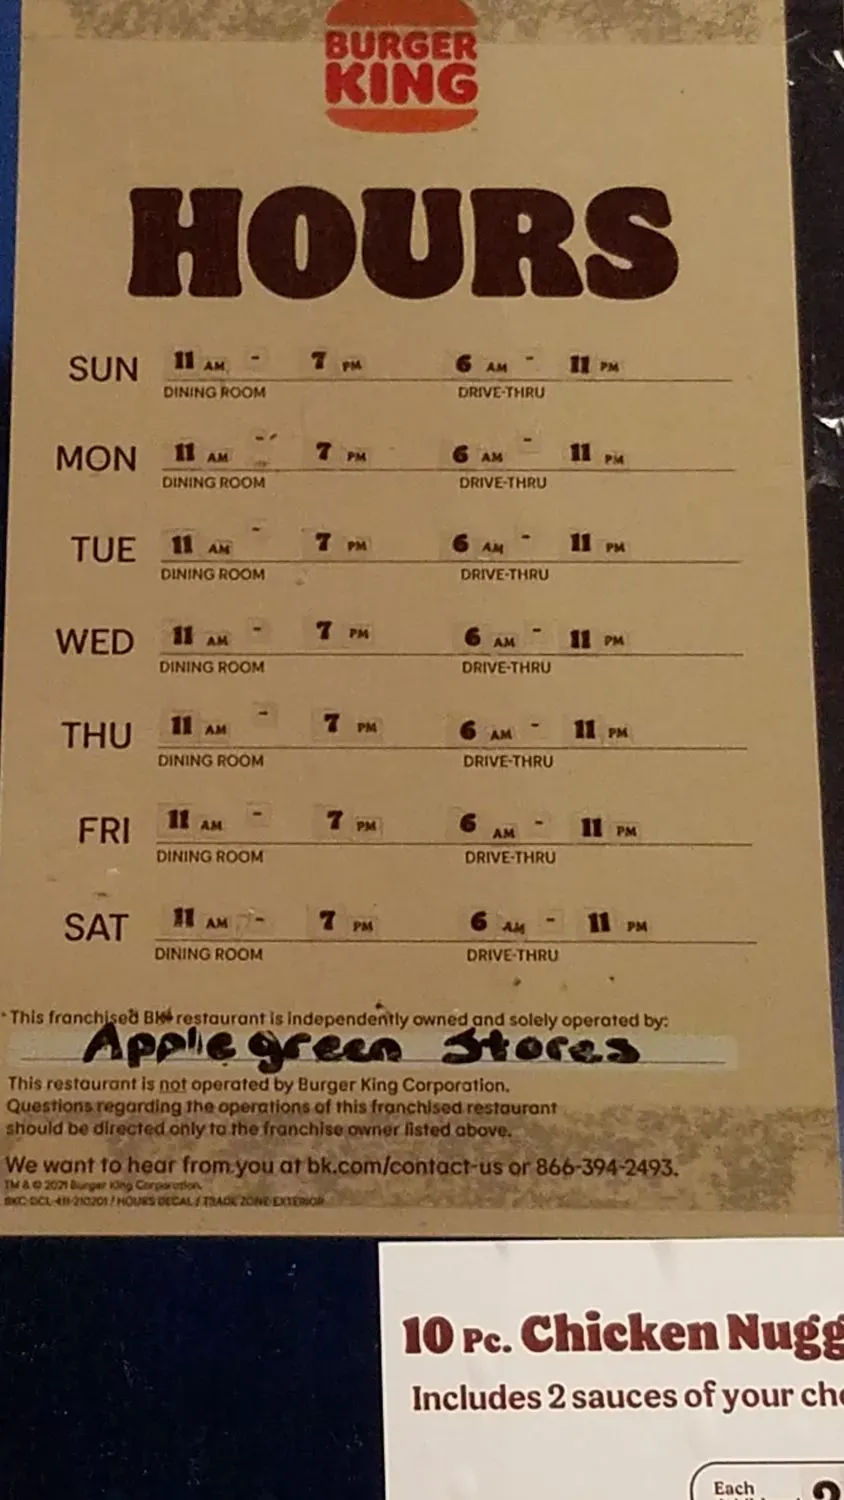 BURGER
KING
HOURS
SUN 11 AM - 7 PM 6 AM - 11 PM
DINING ROOM DRIVE-THRU
MON 11 AM - 7 PM 6 AM - 11 PM
DINING ROOM DRIVE-THRU
TUE 11 AM - 7 PM 6 AM - 11 PM
DINING ROOM DRIVE-THRU
WED 11 AM - 7 PM 6 AM - 11 PM
DINING ROOM DRIVE-THRU
THU 11 AM - 7 PM 6 AM - 11 PM
DINING ROOM DRIVE-THRU
FRI 11 AM - 7 PM 6 AM - 11 PM
DINING ROOM DRIVE-THRU
SAT 11 AM - 7 PM 6 AM - 11 PM
DINING ROOM DRIVE-THRU
* This franchised BK restaurant is independently owned and solely operated by:
Applegreen Stores
This restaurant is not operated by Burger King Corporation.
Questions regarding the operations of this franchised restaurant
should be directed only to the franchise owner listed above.
We want to hear from you at bk.com/contact-us or 866-394-2493.
TM & © 2021 Burger King Corporation.
BKC-DCL-411-210201 / HOURS DECAL / TRADE ZONE EXTERIOR
10 Pc. Chicken Nugg
Includes 2 sauces of your cho
Each